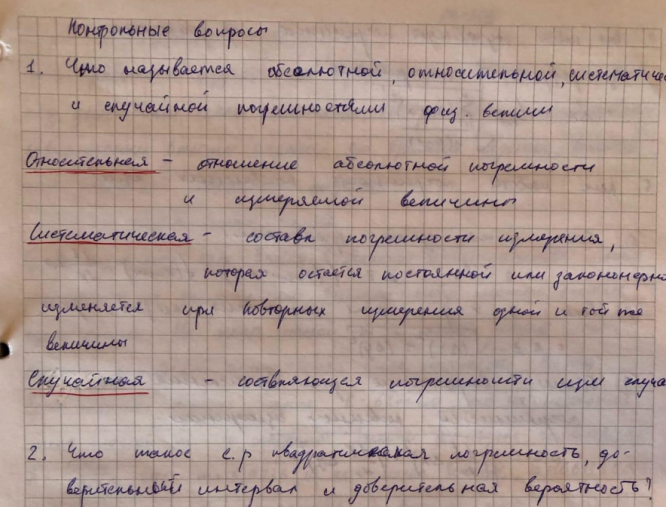 Контрольные вопросы
1. Что называется абсолютной, относительной, систематичес
и случайной погрешностями физ. велич
Относительная – отношение абсолютной погрешности
и измеряемой величины
Систематическая – составл погрешности измерения,
которая остается постоянной или закономерно
изменяется при повторных измерения одной и той же
величины
Случайная – составляющая погрешности изм случа
2. Что такое с.р квадратическая погрешность, до-
верительный интервал и доверительная вероятность?